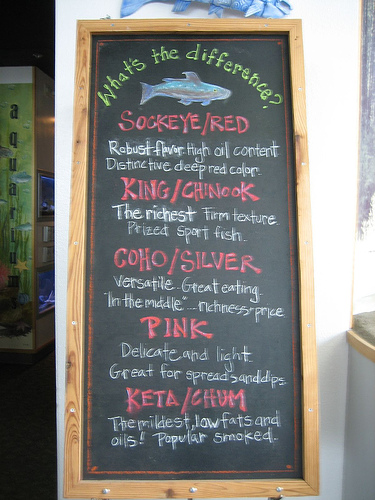 What's the difference?
SOCKEYE/RED
Robust flavor. High oil content
Distinctive deep red color.
KING/CHINOOK
The richest Firm texture
Prized sport fish.
COHO/SILVER
Versatile. Great eating.
"In the middle" - richness + price
PINK
Delicate and light
Great for spreads and dips
KETA/CHUM
The mildest, low fats and
oils! Popular smoked.